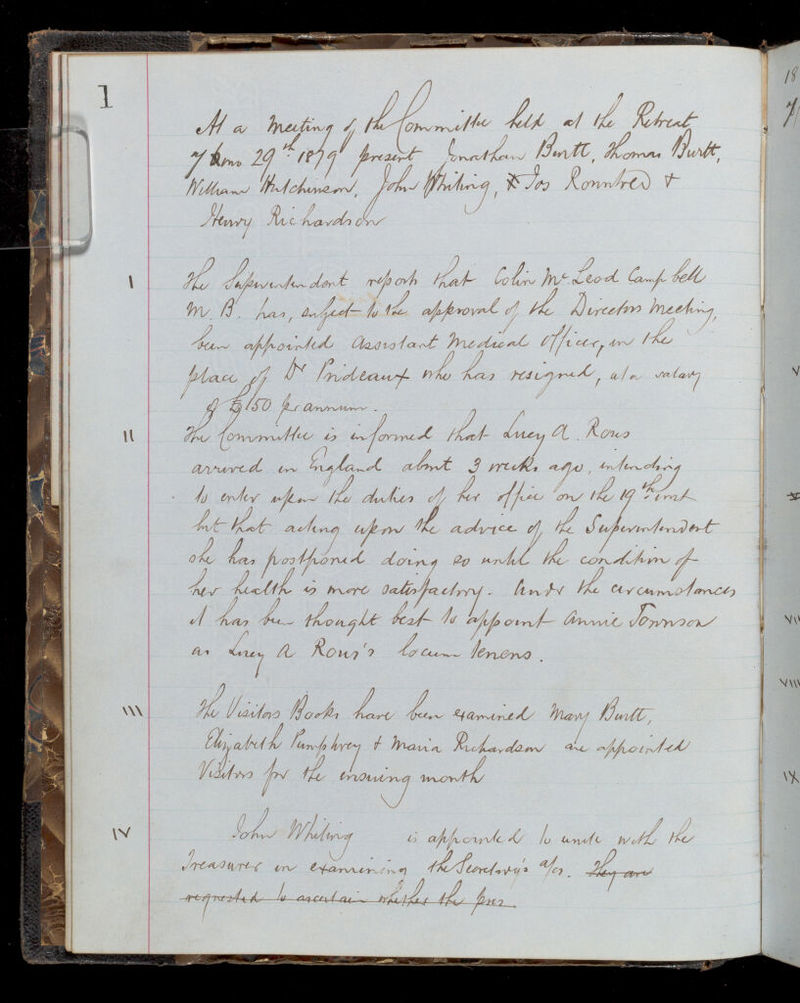 1
At a meeting of the Committee held at the Retreat
7 mo 29th 1879 present Jonathan Burtt, Thomas Burtt,
William Hutchinson, John Whiting, Jos Rowntree &
Henry Richardson
I The Superintendent reports that Colin Mc Leod Campbell
M. B. has, subject to the approval of the Directors Meeting,
been appointed Assistant Medical Officer, in the
place of Dr Prideaux who has resigned, at a salary
of £150 per annum.
II The Committee is informed that Lucy A. Rous
arrived in England about 3 weeks ago, intending
to enter upon the duties of her office on the 19th inst
but that acting upon the advice of the Superintendent
she has postponed doing so until the condition of
her health is more satisfactory. Under the circumstances
it has been thought best to appoint Annie Townson
as Lucy A Rous's locum tenens.
III The Visitors Books have been examined Mary Burtt,
Elizabeth Pumphrey & Maria Richardson are appointed
Visitors for the ensuing month
IV John Whiting is appointed to unite with the
Treasurer in examining the Secretary's a/cs. They are
requested to ascertain whether the pres
18
7
V
VII
VIII
IX